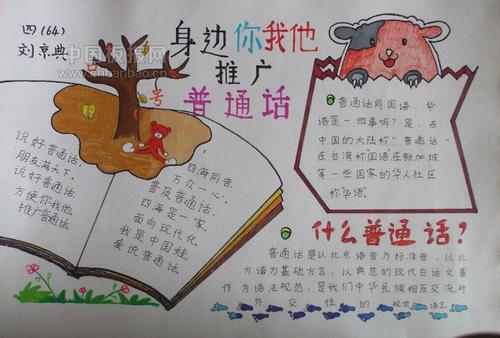 四(64)
刘京典
中国板报网
www.banbao.cn
身边你我他
推广
普通话
号
说好普通话,
朋友满天下。
说好普通话,
方便你我他,
推广普通话
四海同音,
万众一心,
普及普通话,
四海是一家,
面向现代化,
我是中国娃,
爱说普通话。
普通话同国语、华
语是一回事吗?是,在
中国的大陆称“普通话”
在台湾称国语在新加坡
等一些国家的华人社区
称“华语”
什么普通话?
普通话是以北京语音为标准音,以北
方话为基础方言,以典范的现代白话文著
作为语法规范,是我们中华民族相互交流对
外交性的规定语言